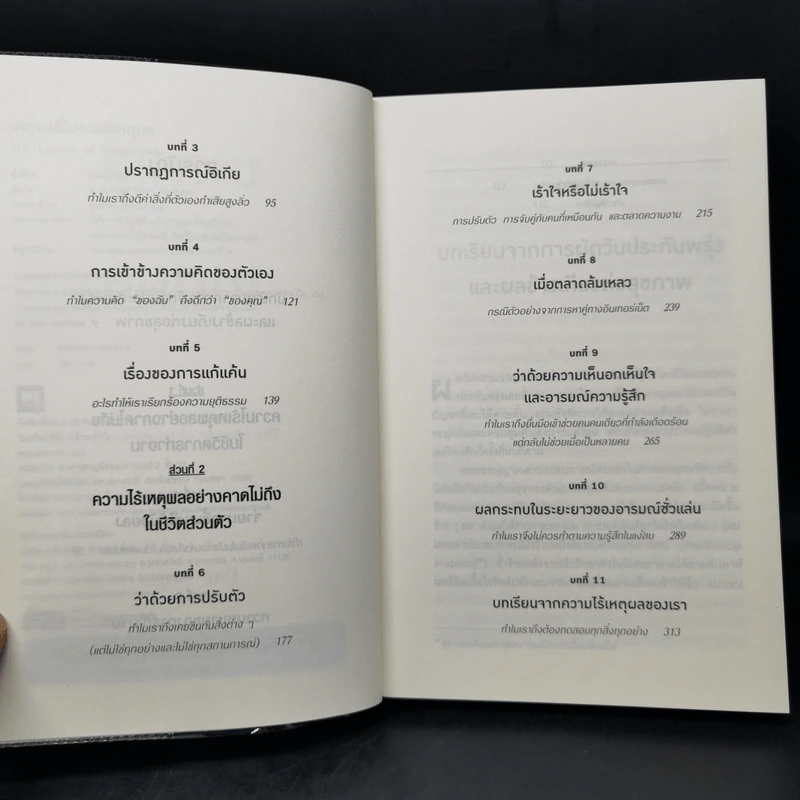 บทที่ 3
ปรากฏการณ์อิเกีย
ทำไมเราถึงตีค่าสิ่งที่ตัวเองทำเสียสูงลิ่ว 95
บทที่ 4
การเข้าข้างความคิดของตัวเอง
ทำไมความคิด “ของฉัน” ถึงดีกว่า “ของคุณ” 121
บทที่ 5
เรื่องของการแก้แค้น
อะไรทำให้เราเรียกร้องความยุติธรรม 139
ส่วนที่ 2
ความไร้เหตุผลอย่างคาดไม่ถึง
ในชีวิตส่วนตัว
บทที่ 6
ว่าด้วยการปรับตัว
ทำไมเราถึงเคยชินกับสิ่งต่าง ๆ
(แต่ไม่ใช่ทุกอย่างและไม่ใช่ทุกสถานการณ์) 177
บทที่ 7
เร้าใจหรือไม่เร้าใจ
การปรับตัว การจับคู่กับคนที่เหมือนกัน และตลาดความงาม 215
บทที่ 8
เมื่อตลาดล้มเหลว
กรณีตัวอย่างจากการหาคู่ทางอินเทอร์เน็ต 239
บทที่ 9
ว่าด้วยความเห็นอกเห็นใจ
และอารมณ์ความรู้สึก
ทำไมเราถึงยื่นมือเข้าช่วยคนคนเดียวที่กำลังเดือดร้อน
แต่กลับไม่ช่วยเมื่อเป็นหลายคน 265
บทที่ 10
ผลกระทบในระยะยาวของอารมณ์ชั่วแล่น
ทำไมเราจึงไม่ควรทำตามความรู้สึกในแง่ลบ 289
บทที่ 11
บทเรียนจากความไร้เหตุผลของเรา
ทำไมเราถึงต้องทดสอบทุกสิ่งทุกอย่าง 313